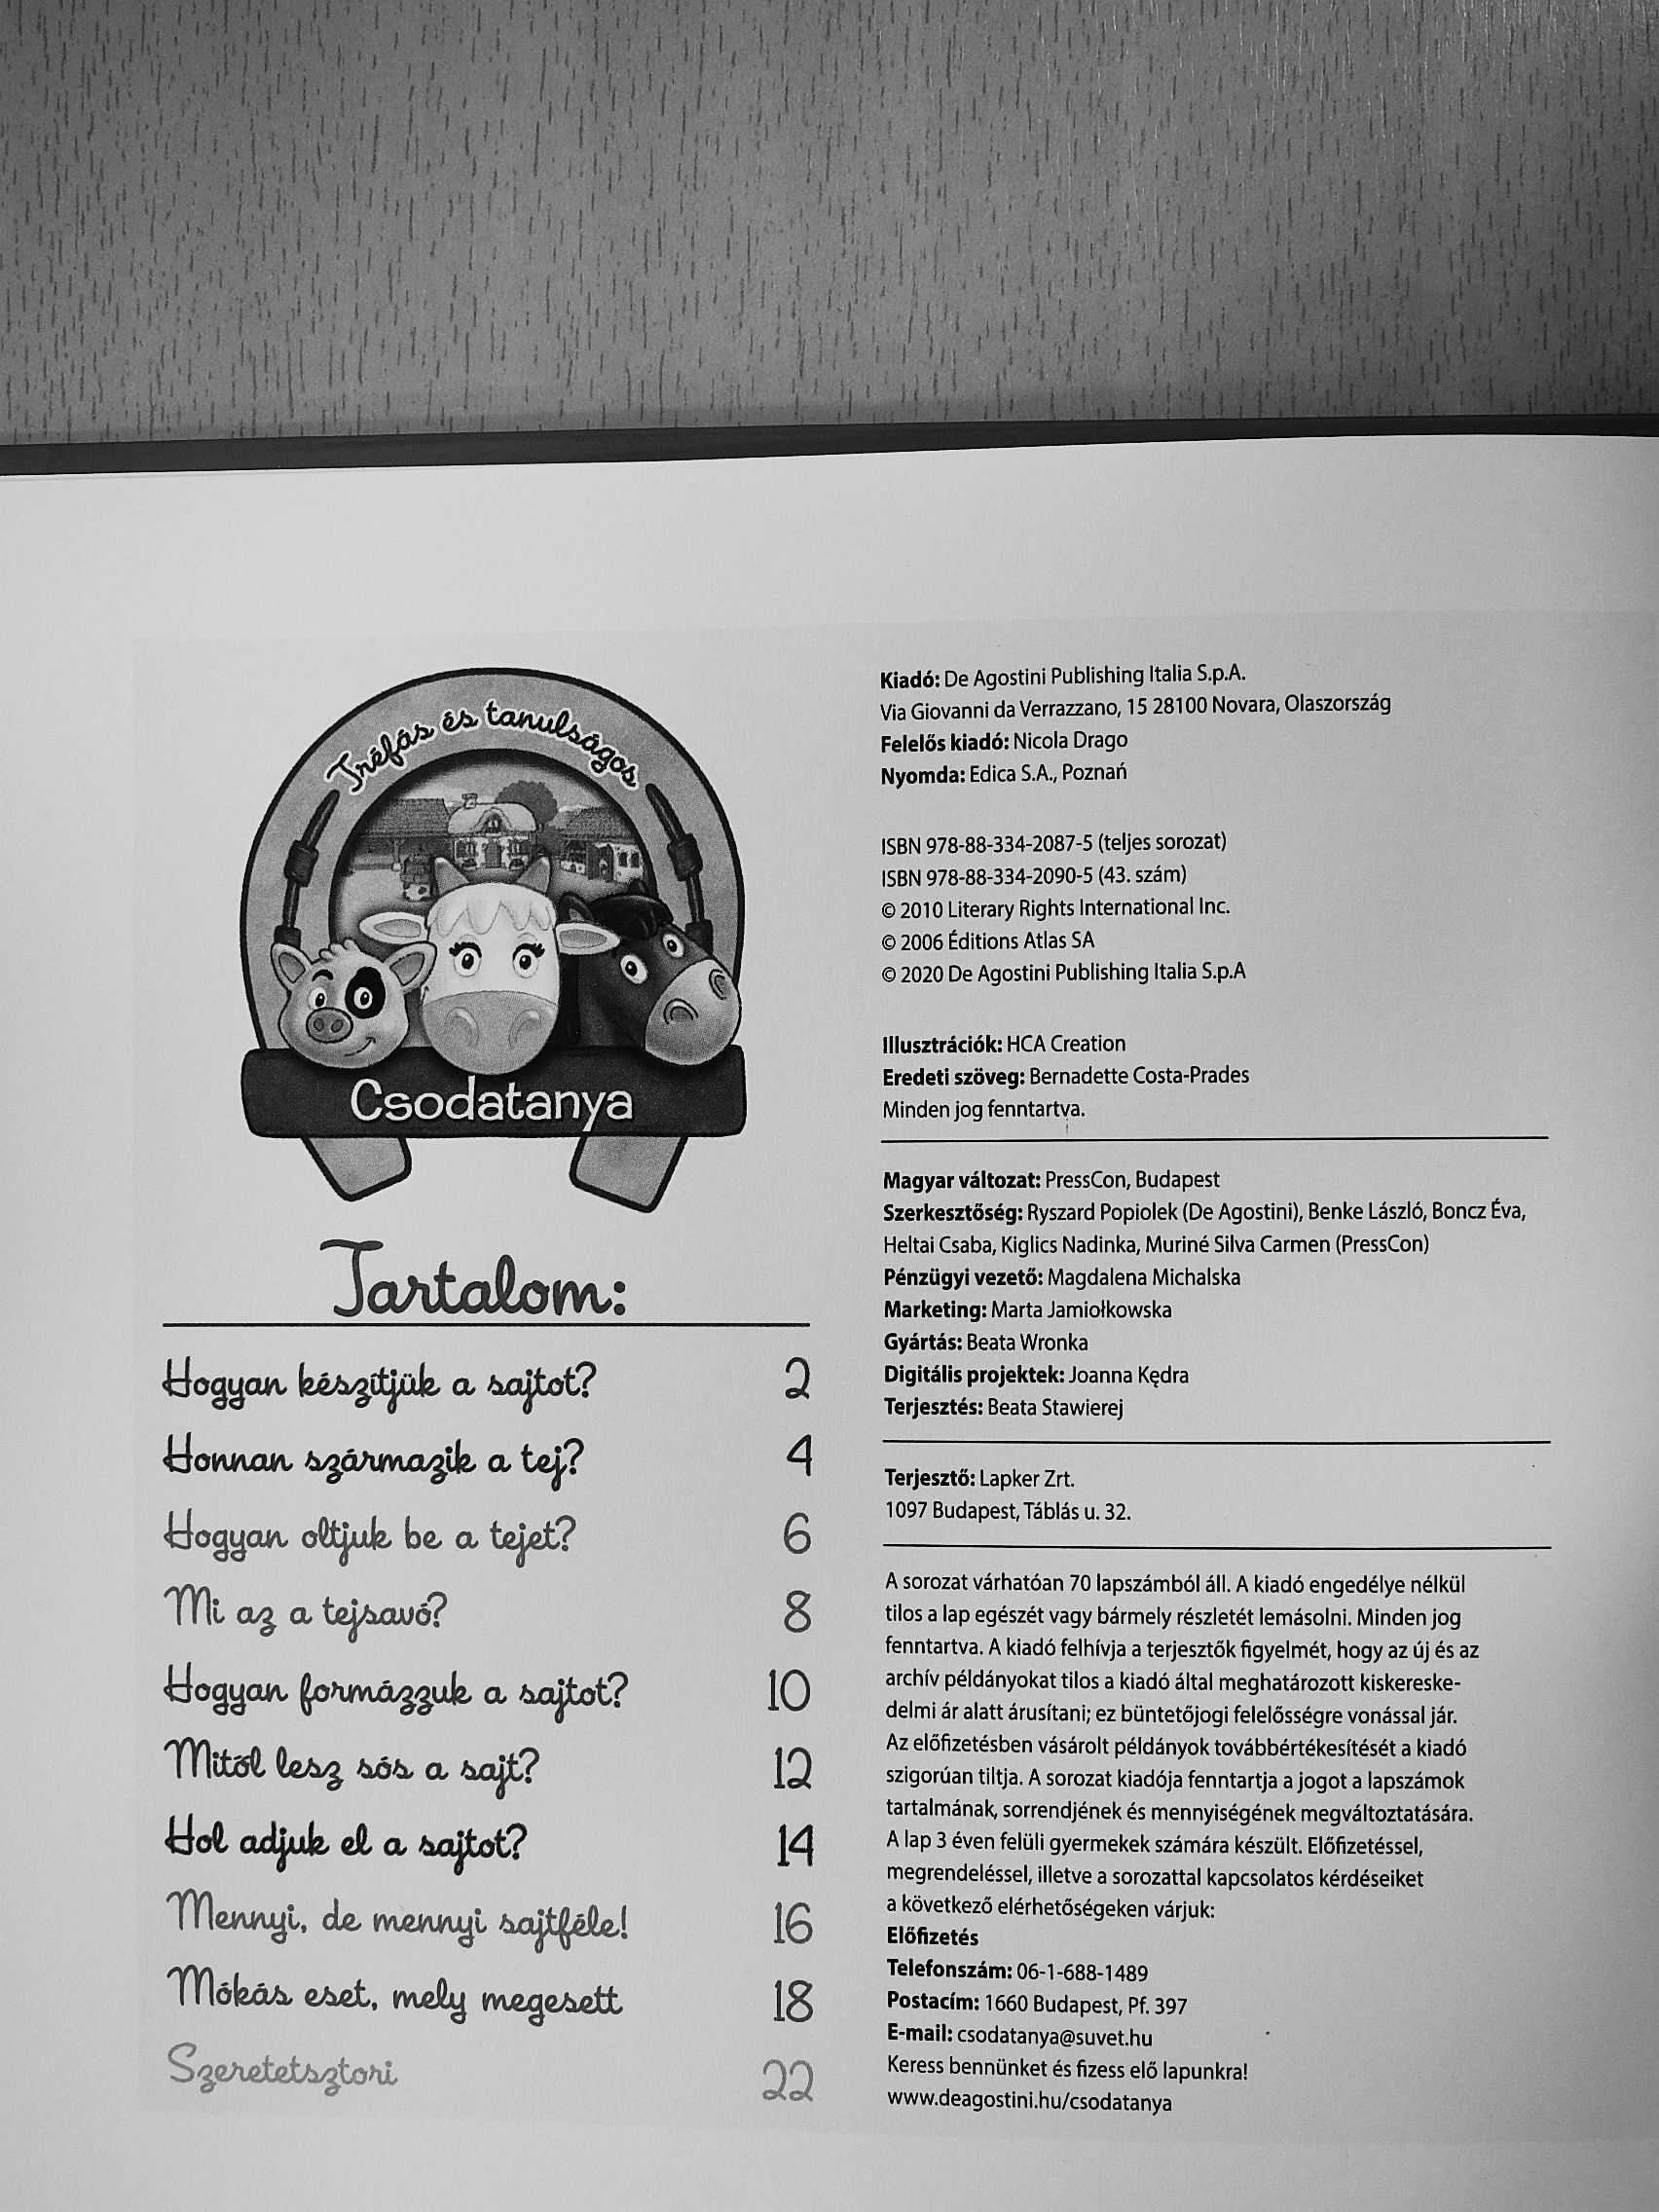 Tréfás és tanulságos
Csodatanya
Tartalom:
Hogyan készítjük a sajtot? 2
Honnan származik a tej? 4
Hogyan oltjuk be a tejet? 6
Mi az a tejsavó? 8
Hogyan formázzuk a sajtot? 10
Mitől lesz sós a sajt? 12
Hol adjuk el a sajtot? 14
Mennyi, de mennyi sajtféle! 16
Mókás eset, mely megesett 18
Szeretetsztori 22
Kiadó: De Agostini Publishing Italia S.p.A.
Via Giovanni da Verrazzano, 15 28100 Novara, Olaszország
Felelős kiadó: Nicola Drago
Nyomda: Edica S.A., Poznań
ISBN 978-88-334-2087-5 (teljes sorozat)
ISBN 978-88-334-2090-5 (43. szám)
© 2010 Literary Rights International Inc.
© 2006 Éditions Atlas SA
© 2020 De Agostini Publishing Italia S.p.A
Illusztrációk: HCA Creation
Eredeti szöveg: Bernadette Costa-Prades
Minden jog fenntartva.
Magyar változat: PressCon, Budapest
Szerkesztőség: Ryszard Popiolek (De Agostini), Benke László, Boncz Éva,
Heltai Csaba, Kiglics Nadinka, Muriné Silva Carmen (PressCon)
Pénzügyi vezető: Magdalena Michalska
Marketing: Marta Jamiołkowska
Gyártás: Beata Wronka
Digitális projektek: Joanna Kędra
Terjesztés: Beata Stawierej
Terjesztő: Lapker Zrt.
1097 Budapest, Táblás u. 32.
A sorozat várhatóan 70 lapszámból áll. A kiadó engedélye nélkül
tilos a lap egészét vagy bármely részletét lemásolni. Minden jog
fenntartva. A kiadó felhívja a terjesztők figyelmét, hogy az új és az
archív példányokat tilos a kiadó által meghatározott kiskereske-
delmi ár alatt árusítani; ez büntetőjogi felelősségre vonással jár.
Az előfizetésben vásárolt példányok továbbértékesítését a kiadó
szigorúan tiltja. A sorozat kiadója fenntartja a jogot a lapszámok
tartalmának, sorrendjének és mennyiségének megváltoztatására.
A lap 3 éven felüli gyermekek számára készült. Előfizetéssel,
megrendeléssel, illetve a sorozattal kapcsolatos kérdéseiket
a következő elérhetőségeken várjuk:
Előfizetés
Telefonszám: 06-1-688-1489
Postacím: 1660 Budapest, Pf. 397
E-mail: csodatanya@suvet.hu
Keress bennünket és fizess elő lapunkra!
www.deagostini.hu/csodatanya